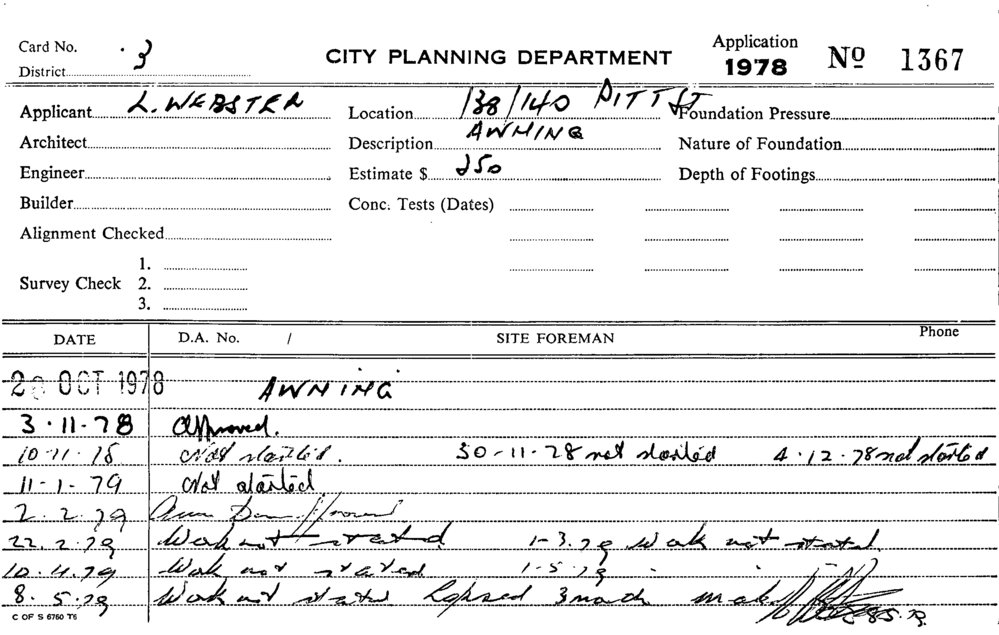 Card No. 3
District
CITY PLANNING DEPARTMENT
Application
1978
Nº 1367
Applicant L. WEBSTER Location 138/140 PITT ST Foundation Pressure
Architect Description AWNING Nature of Foundation
Engineer Estimate $ 250 Depth of Footings
Builder Conc. Tests (Dates)
Alignment Checked
1.
Survey Check 2.
3.
DATE D.A. No. / SITE FOREMAN Phone
OCT 1978 AWNING
3.11.78 Approved.
10.11.78 Not started. 30-11-78 not started 4.12.78 not started
11-1-79 Not started
2.2.79
22.2.79 Work not started 1-3.79 Work not started.
10.4.79 Work not started 1-5.79
8.5.79 Work not started lapsed 3 months
C OF S 6760 T6